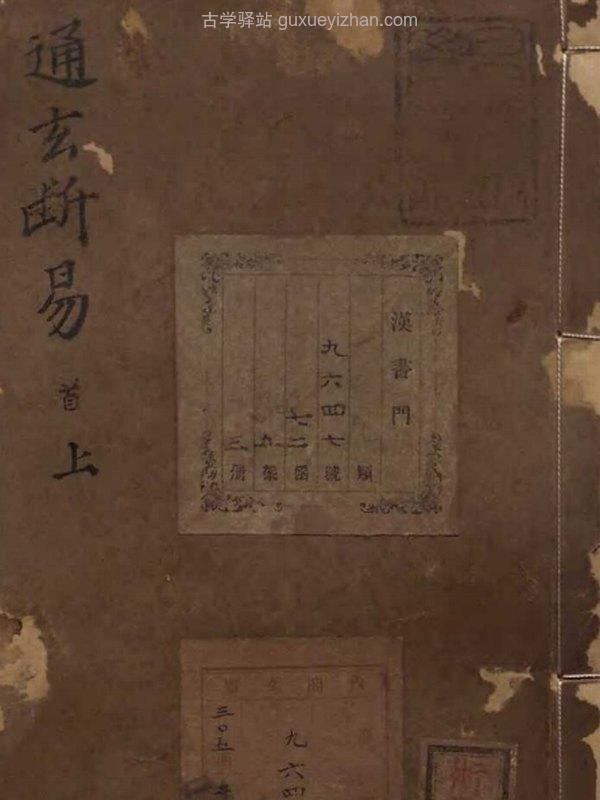 古学驿站 guxueyizhan.com
通玄断易
首
上
漢書門
類
九六四七號
七二函
九架
三册
内閣文庫
三〇五
九六四
術